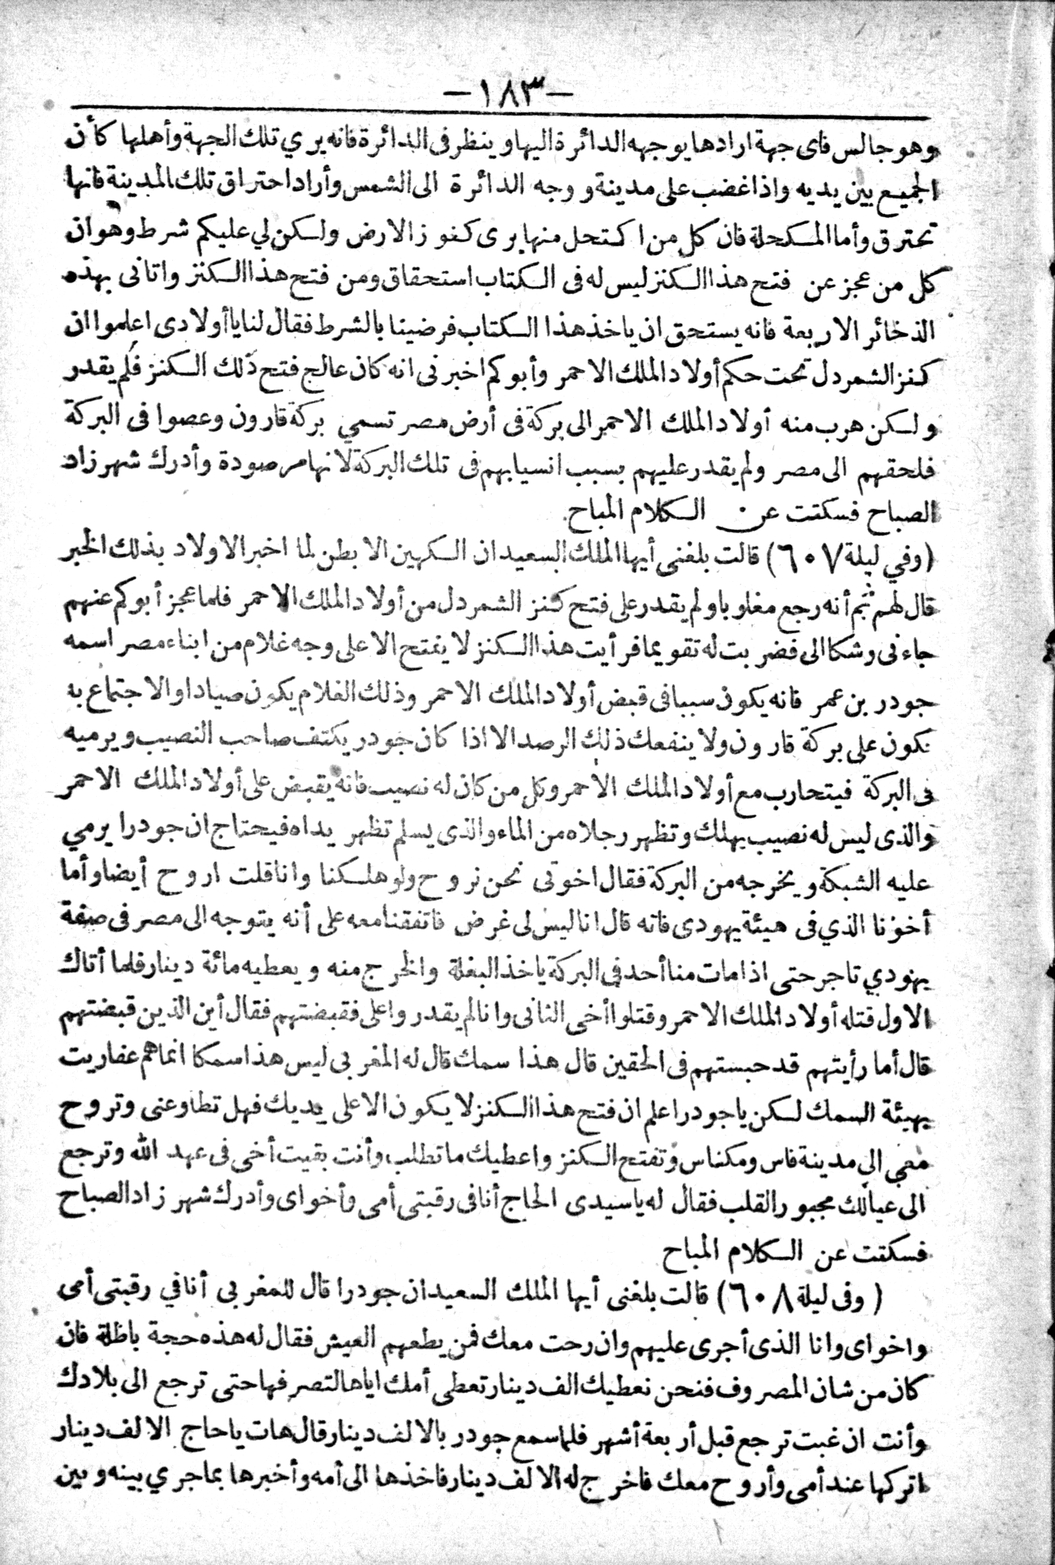 -١٨٣-
وهو جالس فاى جهة ارادها يوجهه الدائرة اليها وينظر فى الدائرة فانه يري تلك الجهة وأهلها كأن
الجميع بين يديه واذا غضب على مدينة ووجه الدائرة الى الشمس وأراد احتراق تلك المدينة فانها
تحترق وأما المكحلة فان كل من اكتحل منها يرى كنوز الارض ولكن لي عليكم شرط وهو ان
كل من عجز عن فتح هذا الكنز ليس له فى الكتاب استحقاق ومن فتح هذا الكنز واتانى بهذه
الذخائر الاربعة فانه يستحق ان ياخذ هذا الكتاب فرضينا بالشرط فقال لنا يا أولادى اعلموا ان
كنز الشمردل تحت حكم أولاد الملك الاحمر وأبوكم اخبرنى انه كان عالج فتح ذلك الكنز فلم يقدر
ولكن هرب منه أولاد الملك الاحمر الى بركة فى أرض مصر تسمي بركة قارون وعصوا فى البركة
فلحقهم الى مصر ولم يقدر عليهم بسبب انسيابهم فى تلك البركة لانها مرصودة وأدرك شهر زاد
الصباح فسكتت عن الكلام المباح
(وفي ليلة ٦٠٧) قالت بلغنى أيها الملك السعيد ان الكهين الابطن لما اخبر الاولاد بذلك الخبر
قال لهم ثم أنه رجع مغلوبا ولم يقدر على فتح كنز الشمردل من أولاد الملك الاحمر فلما عجز أبوكم عنهم
جاءنى وشكا الى فضربت له تقويما فرأيت هذا الكنز لا يفتح الا على وجه غلام من ابناء مصر اسمه
جودر بن عمر فانه يكون سببا فى قبض أولاد الملك الاحمر وذلك الغلام يكون صيادا والاجتماع به
تكون على بركة قارون ولا ينفعك ذلك الرصد الا اذا كان جودر يكتف صاحب النصيب ويرميه
فى البركة فيتحارب مع أولاد الملك الاحمر وكل من كان له نصيب فانه يقبض على أولاد الملك الاحمر
والذى ليس له نصيب يهلك وتظهر رجلاه من الماء والذى يسلم تظهر يداه فيحتاج ان جودرا يرمي
عليه الشبكة ويخرجه من البركة فقال اخوتى نحن نروح ولو هلكنا وانا قلت اروح أيضا وأما
أخونا الذي فى هيئة يهودى فانه قال انا ليس لى غرض فاتفقنا معه على أنه يتوجه الى مصر فى صفة
يهودي تاجر حتى اذا مات منا أحد فى البركة ياخذ البغلة والخرج منه ويعطيه مائة دينار فلما أتاك
الاول قتله أولاد الملك الاحمر وقتلوا أخى الثانى وانا لم يقدروا على فقبضتهم فقال أين الذين قبضتهم
قال أما رأيتهم قد حبستهم فى الحقين قال هذا سمك قال له المغربى ليس هذا سمكا انما هم عفاريت
بهيئة السمك لكن يا جودر اعلم ان فتح هذا الكنز لا يكون الا على يديك فهل تطاوعنى وتروح
معي الي مدينة فاس ومكناس وتفتح الكنز واعطيك ما تطلب وأنت بقيت أخى فى عهد الله وترجع
الى عيالك مجبور القلب فقال له يا سيدى الحاج أنا فى رقبتى أمى وأخواى وأدرك شهر زاد الصباح
فسكتت عن الكلام المباح
(وفى ليلة ٦٠٨) قالت بلغنى أيها الملك السعيد ان جودرا قال للمغربى أنا في رقبتى أمى
واخواى وانا الذى أجرى عليهم وان رحت معك فمن يطعمهم العيش فقال له هذه حجة باطلة فان
كان من شان المصروف فنحن نعطيك الف دينار تعطى أمك اياها لتصرفها حتى ترجع الى بلادك
وأنت ان غبت ترجع قبل أربعة أشهر فلما سمع جودر بالالف دينار قال هات يا حاج الالف دينار
اتركها عند أمى وأروح معك فاخرج له الالف دينار فاخذها الى أمه وأخبرها بما جري بينه وبين